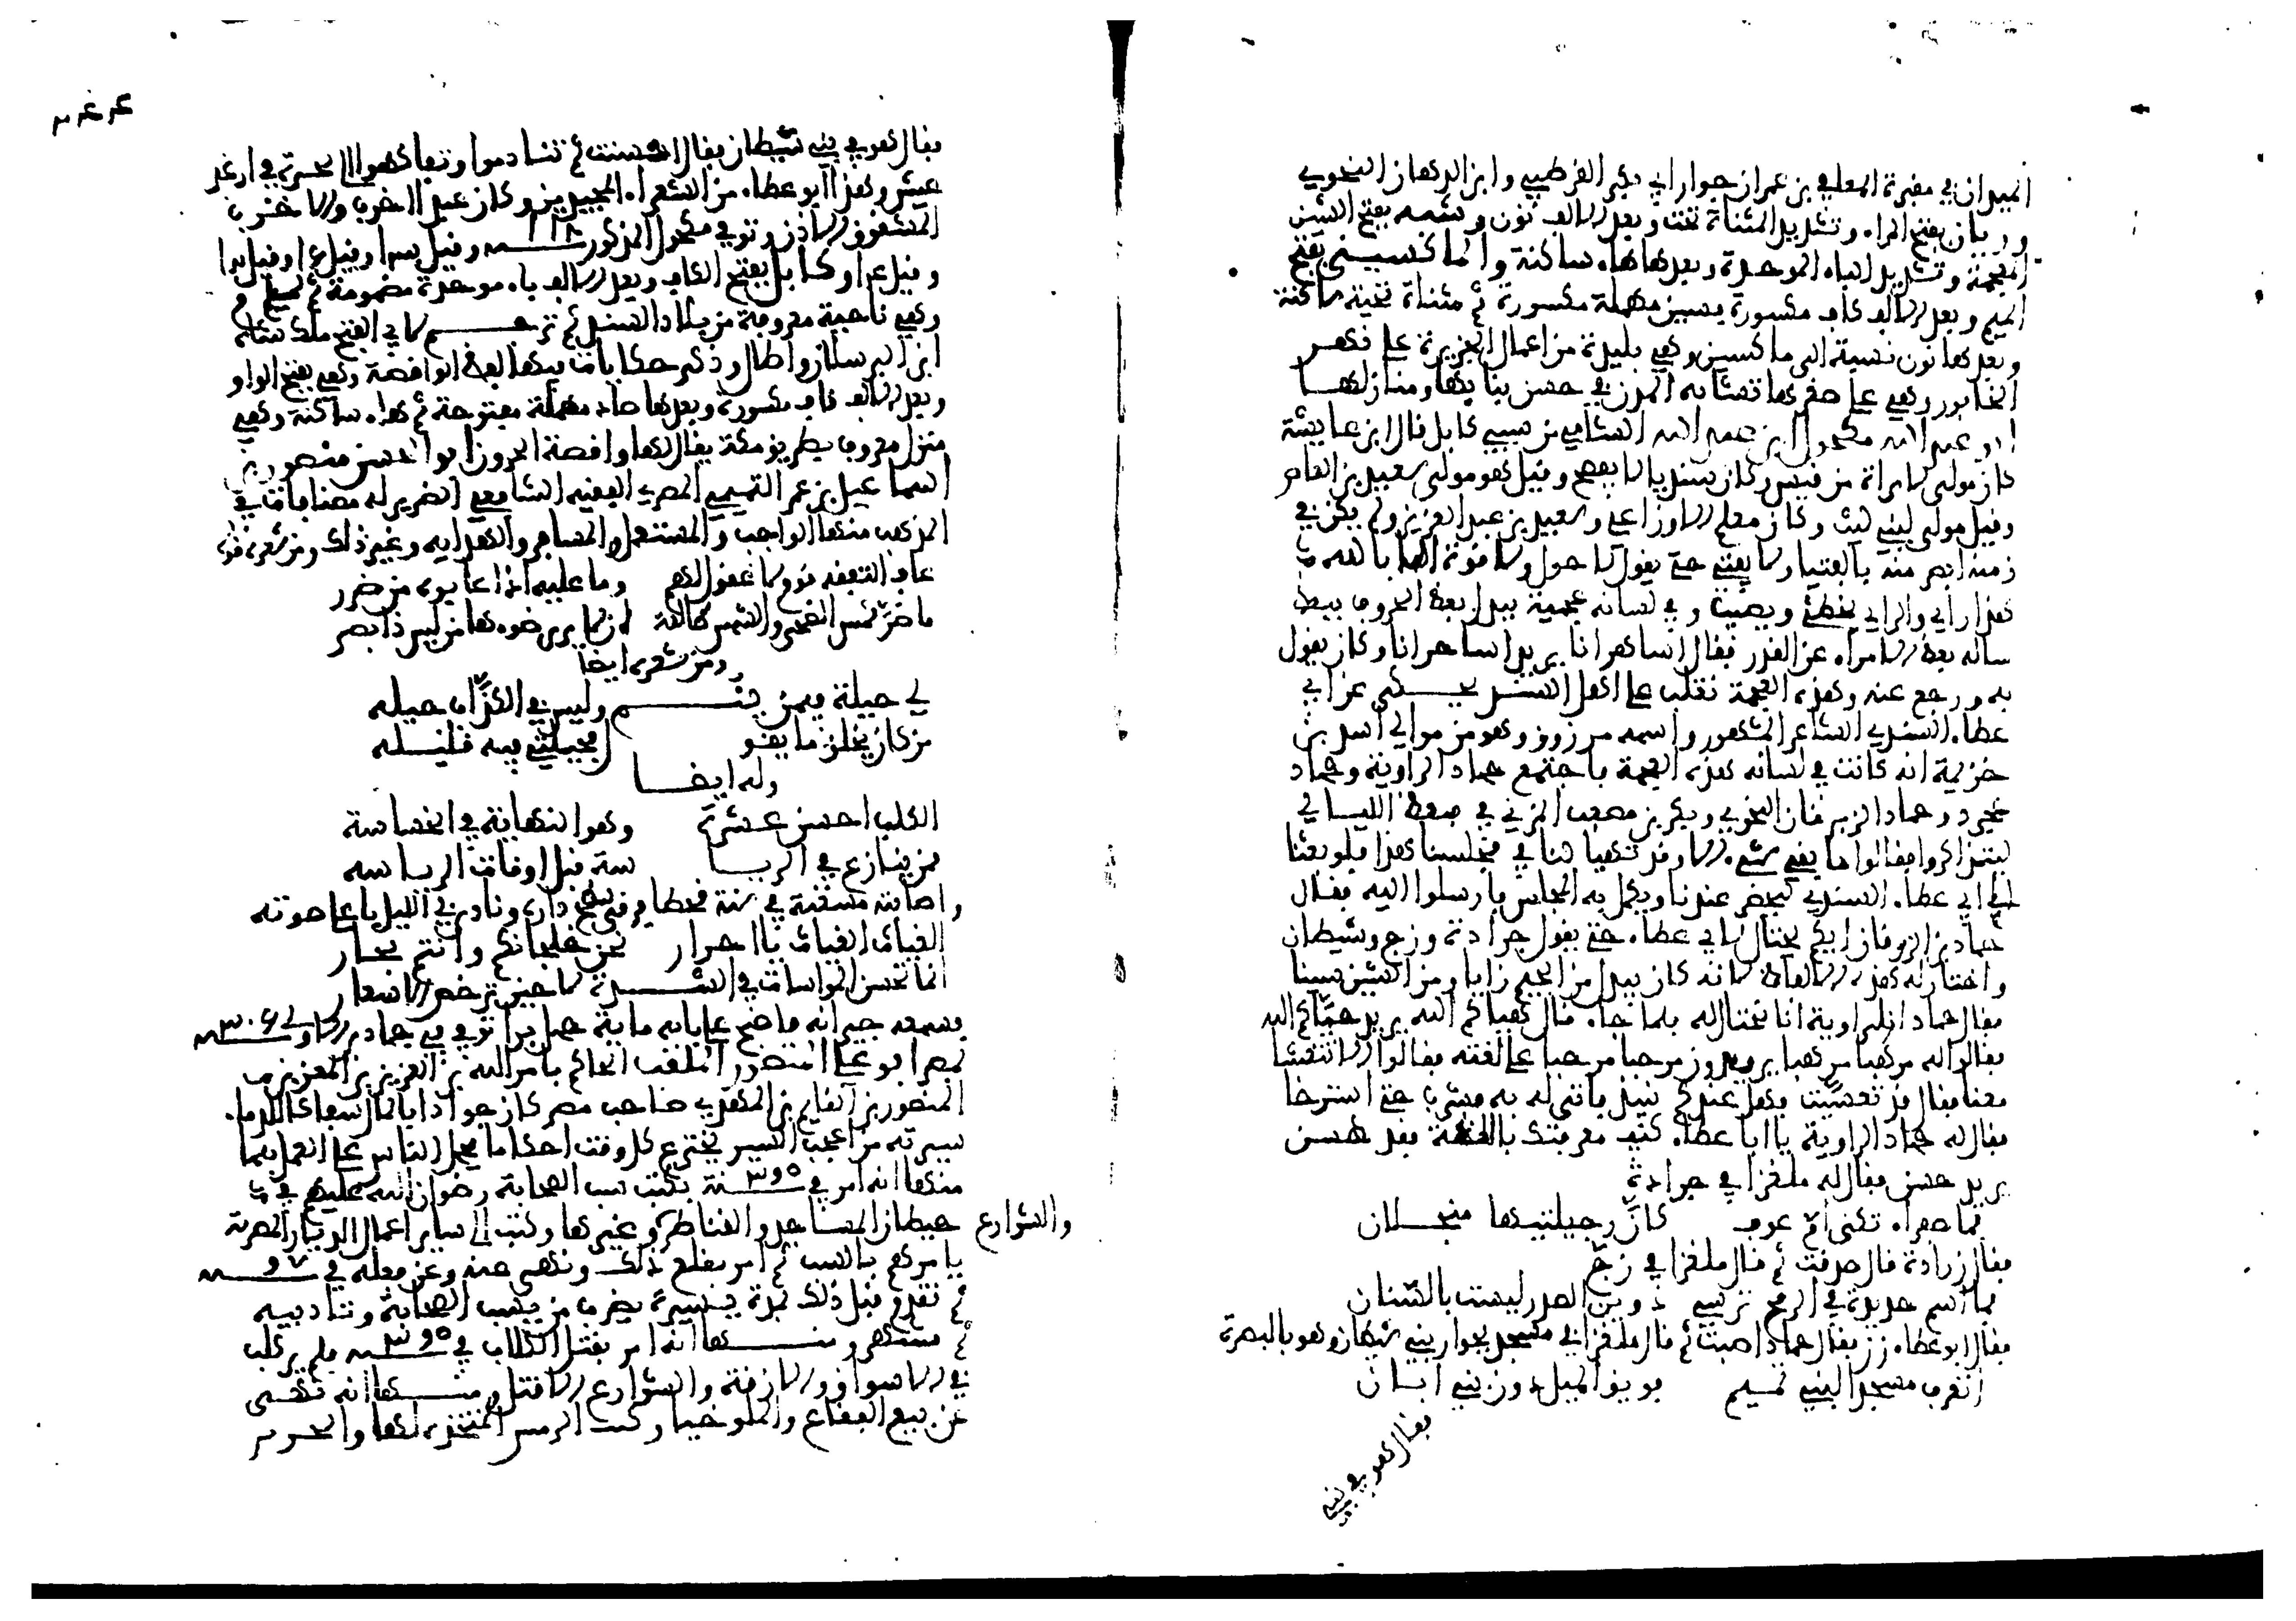 الميدان في مقبرة المعافى بن عمران جوار ابي بكر القرطبي وابن الدهان النحوي
وريان بفتح الراء وتشديد المثناة تحت وبعد الالف نون وشبه بفتح الشين
المعجمة وتشديد الباء الموحدة وبعدها هاء ساكنة والماكسيني بفتح
الميم وبعد الالف كاف مكسورة بسين مهملة مكسورة ثم مثناة تحتية ساكنة
وبعدها نون نسبة الى ماكسين وهي بليدة من اعمال الجزيرة على نهر
الخابور وهي على صغرها تشابه المدن في حسن بنايها ومنازلها
ابو عبد الله مكحول بن عبد الله الشامي من سبي كابل قال ابن عايشة
كان مولى لامراة من قيس وكان سنديا لا يفصح وقيل هو مولى سعيد بن العاص
وقيل مولى لبني ليث وكان معلم الاوزاعي وسعيد بن عبد العزيز ولم يكن في
زمنه ابصر منه بالفتيا ولا يفتي حتى يقول لا حول ولا قوة الا بالله
هذا راي والراي يخطئ ويصيب وفي لسانه عجمية يبدل بعض الحروف
ساله بعض الامراء عن القدر فقال اساهر انا يريد اساحر انا وكان يقول
به ورجع عنه وهذه العجمة تغلب على اهل السند يحكى عن ابي
عطاء السندي الشاعر المشهور واسمه مرزوق وهو من موالي اسد بن
خزيمة انه كانت في لسانه هذه العجمة فاجتمع حماد الراوية وحماد
عجرد وحماد الزبرقان النحوي وبكر بن مصعب المزني في بعض الليالي
ليتذاكروا فقالوا ما بقي شيء الا وقد تهيا لنا في مجلسنا هذا فلو بعثنا
الى ابي عطاء السندي ليحضر عندنا ويكمل به المجلس فارسلوا اليه فقال
حماد بن الزبرقان ايكم يحتال لابي عطاء حتى يقول جرادة وزج وشيطان
واختار له هذه الالفاظ لانه كان يبدل من الجيم زايا ومن الشين سينا
فقال حماد الراوية انا نحتال له فلما جاء قال هياكم الله يريد حياكم الله
فقالوا له مرهبا مرهبا يريدون مرحبا مرحبا على لغته فقالوا الا تتعشا
معنا فقال قد تعسيت فهل عندكم نبيذ فاتي له به فشرب حتى استرخا
فقال له حماد الراوية يا ابا عطاء كيف معرفتك باللغة فقال هسن
يريد حسن فقال له ملغزا في جرادة
فما صفراء تكنى ام عوف كان رجيلتيها منجلان
فقال زرادة قال صدقت ثم قال ملغزا في زج
فما اسم حديدة في الرمح ترسي دوين الصدر ليست بالسنان
فقال ابو عطاء زز فقال حماد اصبت ثم قال ملغزا في مسجد بجوار بني شيطان وهو بالبصرة
اتعرف مسجدا لبني تميم فويق الميل دون بني ابان
فقال هو في بني
٢٤٤
فقال هو في بني شيطان فقال احسنت ثم تنادموا وتفاكهوا الى سحرة في ارغد
عيش وهذا ابو عطاء من الشعراء المجيدين وكان عبدا اخرب والاخرب
المشقوق الاذن وتوفي مكحول المذكور سنة ١١٨ وقيل
وكابل بفتح الكاف وبعد الالف باء موحدة مضمومة ثم لام
وهي ناحية معروفة من بلاد السند ثم ترجم لابي الفتح ملك شاه
ابن الب رسلان واطال وذكر حكايات فيها لفظ الواقصة وهي بفتح الواو
وبعد الالف قاف مكسورة وبعدها صاد مهملة مفتوحة ثم هاء ساكنة وهي
منزل معروف بطريق مكة يقال لها واقصة الحرون ابو الحسن منصور بن
اسماعيل بن عمر التميمي المصري الفقيه الشافعي الضرير له مصنفات في
المذهب منها الواجب والمستعمل والمسافر والهداية وغير ذلك ومن شعره قوله
عاب التفقه قوم لا عقول لهم وما عليه اذا عابوه من ضرر
ما ضر شمس الضحى والشمس طالعة ان لا يرى ضوءها من ليس ذا بصر
ومن شعره ايضا
لي حيلة فيمن ينم وليس في الكذاب حيله
من كان يخلق ما يقو ل فحيلتي فيه قليله
وله ايضا
الكلب احسن عشرة وهو النهاية في الخساسة
ممن ينازع في الريا سة قبل اوقات الرياسه
واصابته مسغبة في سنة قحط فرقي سطح داره ونادى في الليل باعلى صوته
الغياث الغياث يا احرار نحن خلجانكم وانتم بحار
انما تحسن المواسات في الشدة لا حين ترخص الاسعار
فسمعه جيرانه فاصبح على بابه ماية حمل برا توفي في جمادى الاولى سنة ٣٠٦
بمصر ابو علي المنصور الملقب الحاكم بامر الله بن العزيز بن المعز بن
المنصور بن القايم بن المهدي صاحب مصر كان جوادا بالمال سفاكا للدماء
سيرته من اعجب السير يخترع كل وقت احكاما يحمل الناس على العمل بها
منها انه امر في سنة ٣٩٥ بكتب سب الصحابة رضوان الله عليهم في
حيطان المساجد والقناطر وغيرها وكتب الى ساير اعمال الديار المصرية
والشوارع
يامرهم بالسب ثم امر بقلع ذلك ونهى عنه وعن فعله في سنة ٩٧
ثم تقدم قبل ذلك بمدة يسيرة بضرب من يسب الصحابة وتاديبه
ثم يشتهر ومنها انه امر بقتل الكلاب في سنة ٣٩٥ فلم ير كلب
في الاسواق والازقة والشوارع الا قتل ومنها انه نهى
عن بيع الفقاع والملوخيا وكبب الترمس المتخذة لها والجرجير